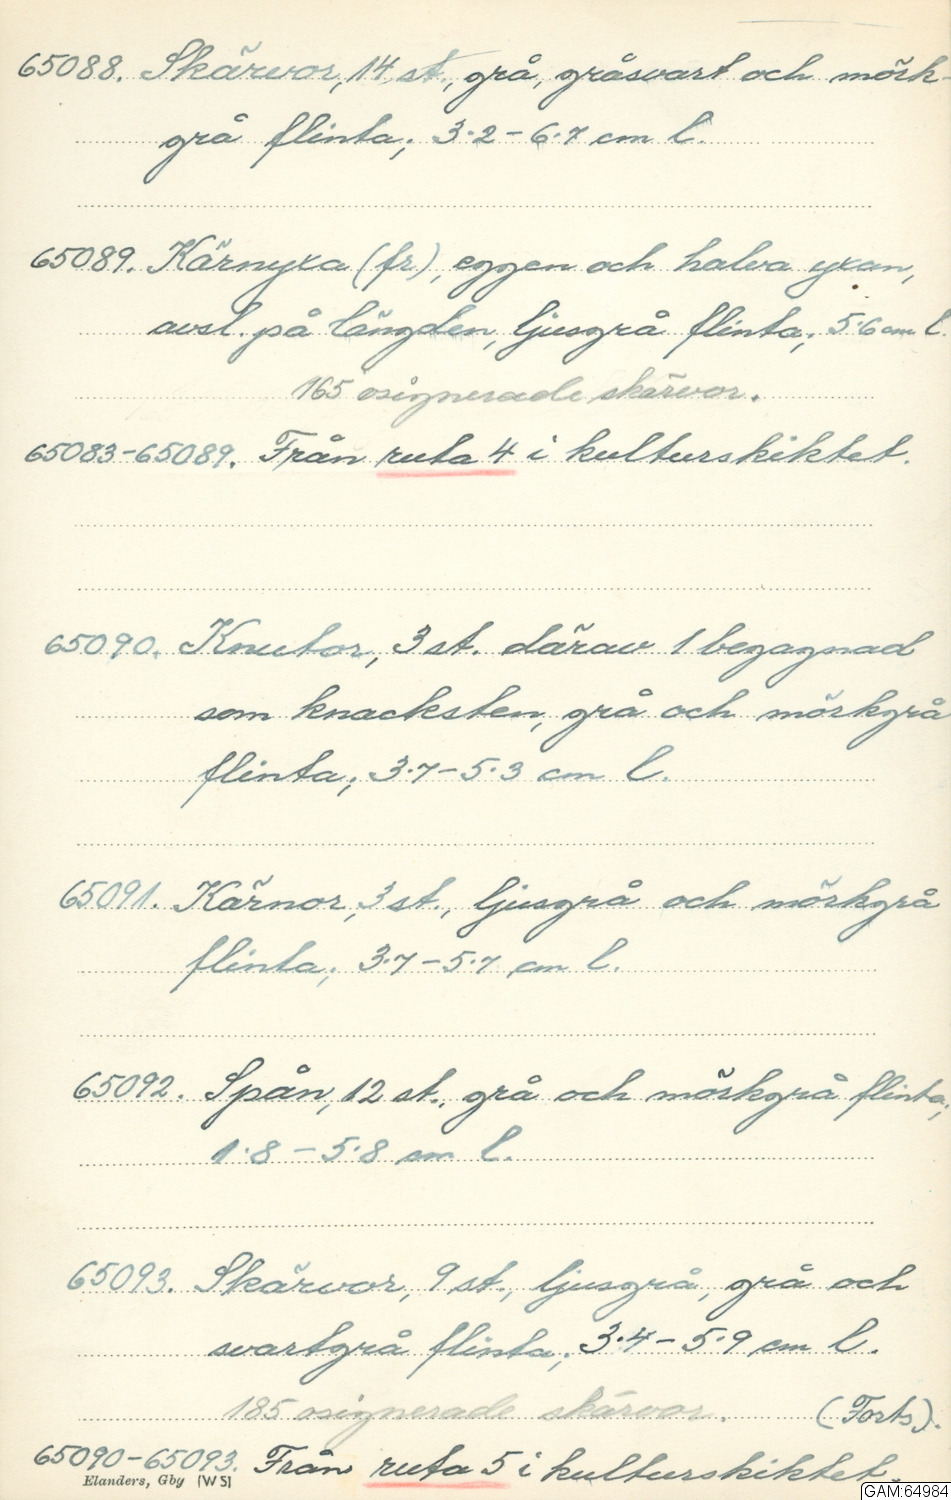 65088. Skärvor, 14 st., grå, gråsvart och mörk-
grå flinta; 3.2-6.7 cm l.
65089. Kärnyxa (fr), eggen och halva yxan,
avsl. på längden, ljusgrå flinta; 5.6 cm l.
165 osignerade skärvor.
65083-65089. Från ruta 4 i kulturskiktet.
65090. Knutor, 3 st. därav 1 begagnad
som knacksten, grå och mörkgrå
flinta; 3.7-5.3 cm l.
65091. Kärnor, 3 st., ljusgrå och mörkgrå
flinta; 3.7-5.7 cm l.
65092. Spån, 12 st., grå och mörkgrå flinta;
1.8-5.8 cm l.
65093. Skärvor, 9 st., ljusgrå, grå och
svartgrå flinta; 3.4-5.9 cm l.
185 osignerade skärvor. (Forts).
65090-65093. Från ruta 5 i kulturskiktet.
Elanders, Gbg [WS]
GAM:64984